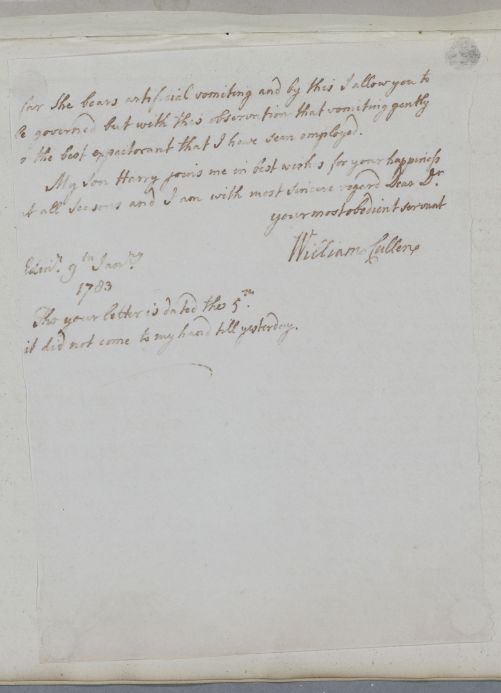 far she bears artificial vomiting and by this I allow you to
be governed but with this observation that vomiting gently
is the best expectorant that I have seen employed.
My son Harry joins me in best wishes for your happiness
at all seasons and I am with most sincere regard Dear Dr.
your most obedient servant
William Cullen
Edinr. 9th Janry.
1783
Tho your letter is dated the 5th
it did not come to my hand till yesterday.